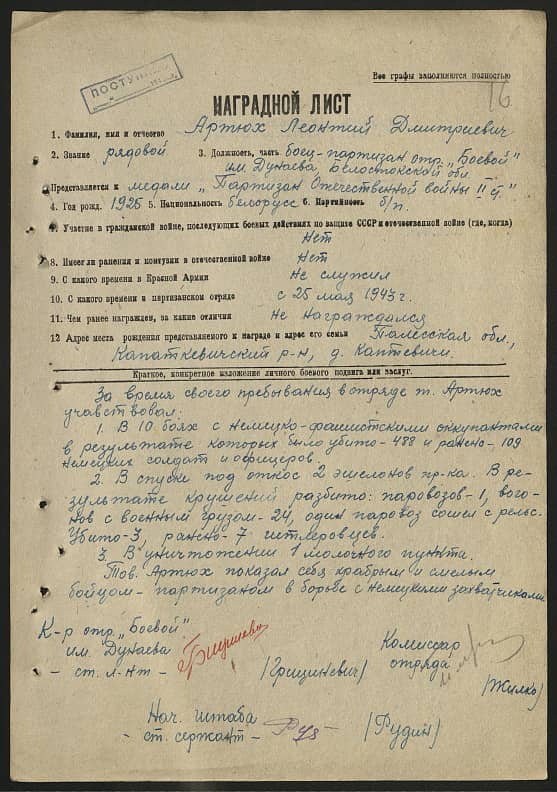 ПОСТУПИЛ
Все графы заполняются полностью
16
НАГРАДНОЙ ЛИСТ
1. Фамилия, имя и отчество Артюх Леонтий Дмитриевич
2. Звание рядовой 3. Должность, часть боец-партизан отр. "Боевой"
им. Дунаева, Белостокской обл.
Представляется к медали "Партизан Отечественной войны II ст."
4. Год рожд. 1925 5. Национальность белорусс 6. Партийность б/п.
7. Участие в гражданской войне, последующих боевых действиях по защите СССР и отечественной войне (где, когда)
Нет
8. Имеет ли ранения и контузии в отечественной войне Нет
9. С какого времени в Красной Армии Не служил
10. С какого времени в партизанском отряде с 25 мая 1943 г.
11. Чем ранее награжден, за какие отличия Не награждался
12 Адрес места рождения представляемого к награде и адрес его семьи Полесская обл.,
Капаткевичский р-н, д. Каптевичи.
Краткое, конкретное изложение личного боевого подвига или заслуг.
За время своего пребывания в отряде т. Артюх
учавствовал:
1. В 10 боях с немецко-фашистскими оккупантами
в результате которых было убито- 488 и ранено- 109
немецких солдат и офицеров.
2. В спуске под откос 2 эшелонов пр-ка. В ре-
зультате крушений разбито: паровозов- 1, ваго-
нов с военным грузом- 24, один паровоз сошел с рельс.
Убито- 3, ранено- 7 гитлеровцев.
3. В уничтожении 1 молочного пункта.
Тов. Артюх показал себя храбрым и смелым
бойцом- партизаном в борьбе с немецкими захватчиками.
К-р отр. "Боевой"
им. Дунаева
- ст. л-нт - /Грициневич/
Комиссар
отряда
/Жилко/
Нач. штаба
ст. сержант - /Рудин/